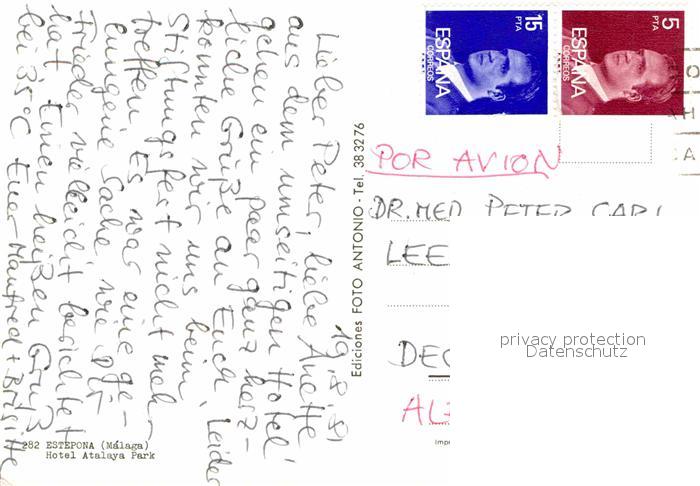 19.8.81
Lieber Peter, liebe Anette
aus dem umseitigen Hotel
gehen ein paar ganz herz-
liche Grüße an Euch. Leider
konnten wir uns beim
Stiftungsfest nicht mehr
treffen. Es war eine ge-
lungene Sache wie
Frieder vielleicht berichtet
hat. Einen heißen Gruß
bei 35°C Euer Manfred + Brigitte
282 ESTEPONA (Málaga)
Hotel Atalaya Park
Ediciones FOTO ANTONIO - Tel. 383276
15
PTA
ESPAÑA
CORREOS
5
PTA
ESPAÑA
CORREOS
POR AVION
DR. MED PETER CARL
LEE
privacy protection
Datenschutz
DE
AL
Impr